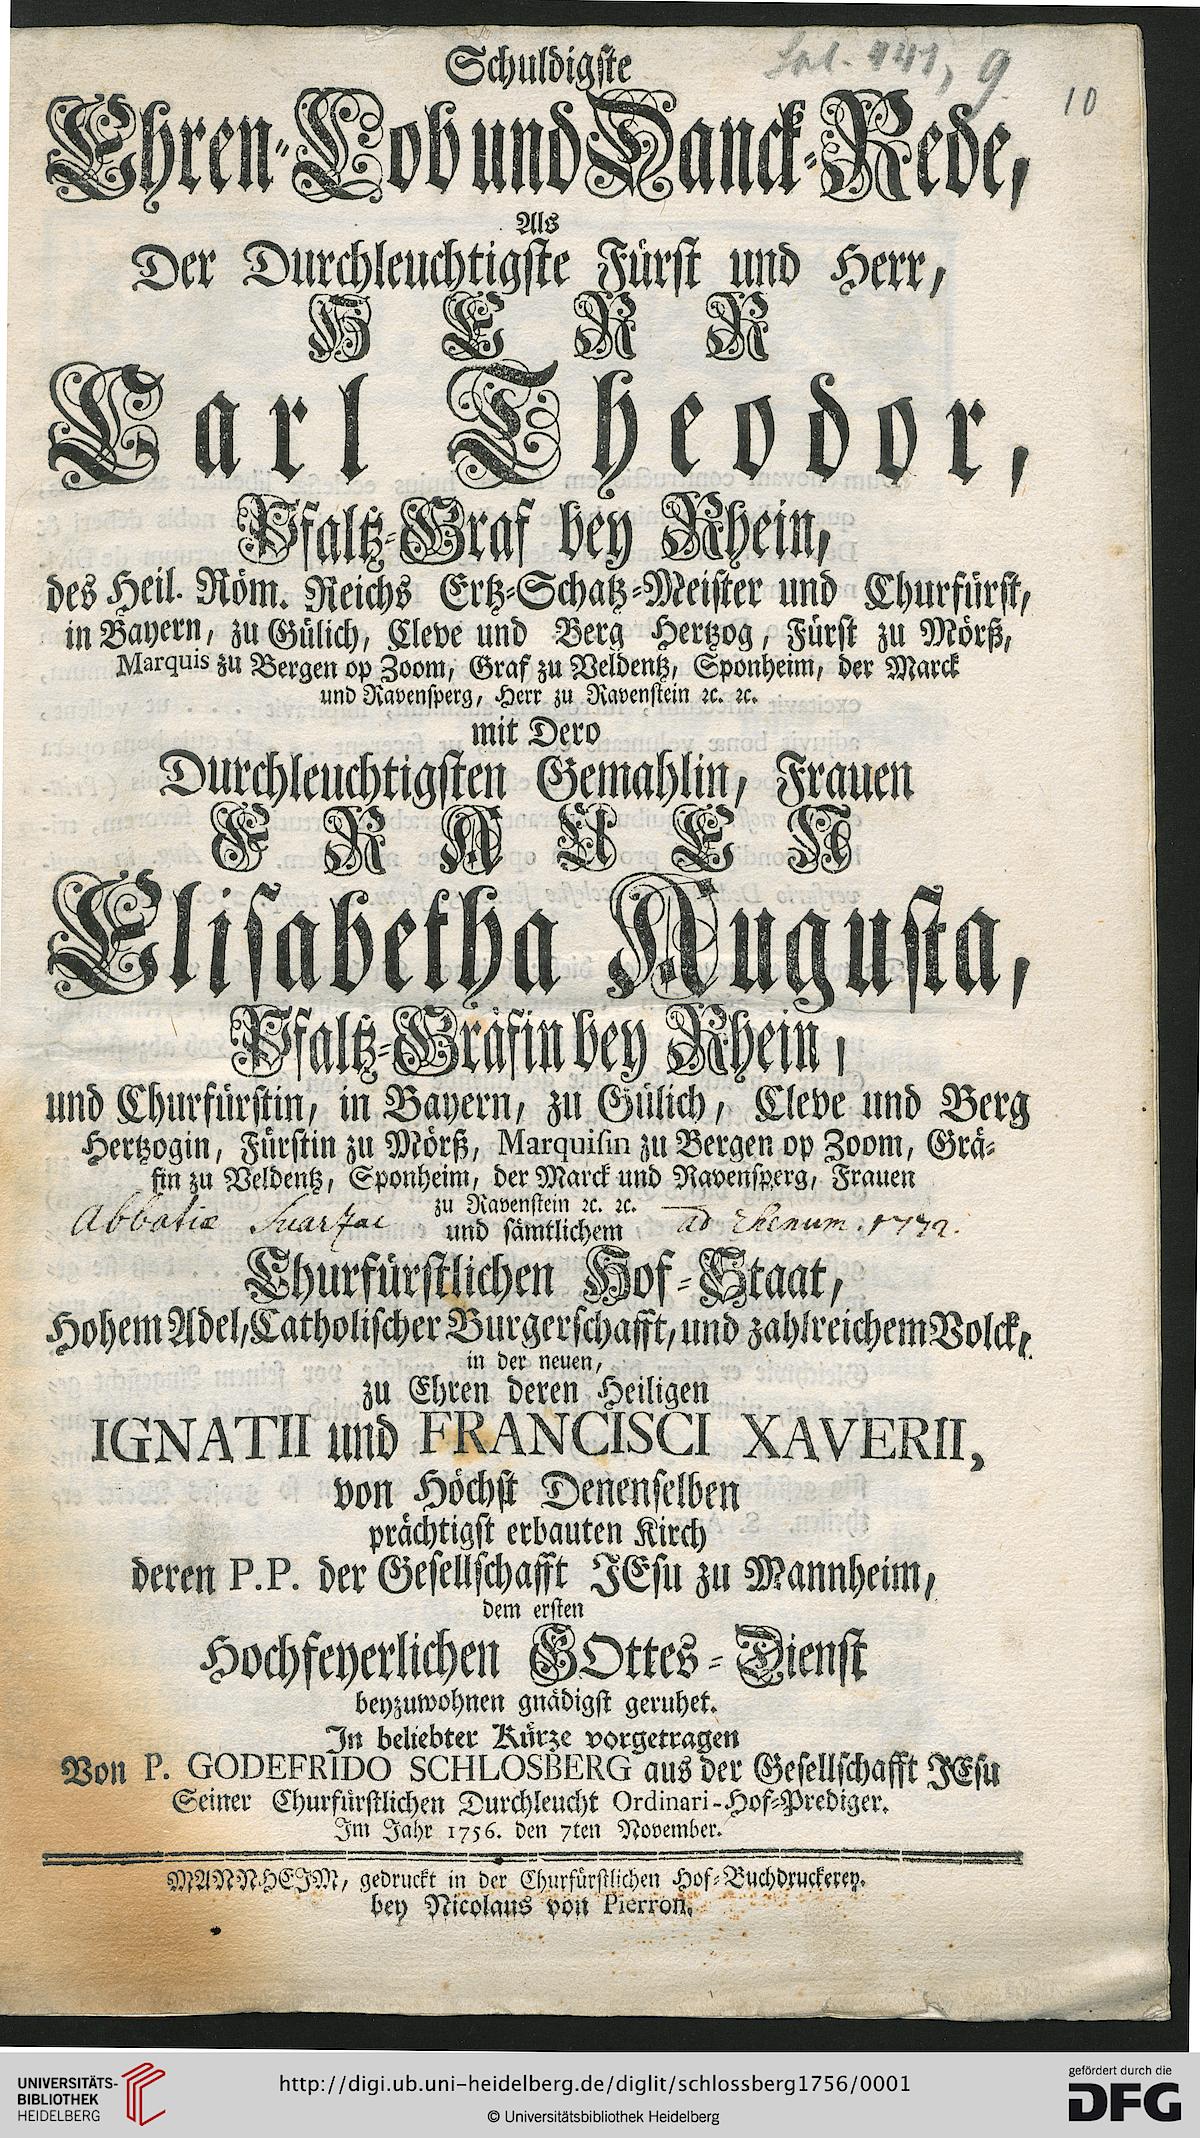 Schuldigste
Ehren-Lob und Danck-Rede,
Als
Der Durchleuchtigste Fürst und Herr,
HERR
Carl Theodor,
Pfaltz-Graf bey Rhein,
des Heil. Röm. Reichs Ertz-Schatz-Meister und Churfürst,
in Bayern, zu Gülich, Cleve und Berg Hertzog, Fürst zu Mörß,
Marquis zu Bergen op Zoom, Graf zu Veldentz, Sponheim, der Marck
und Ravensperg, Herr zu Ravenstein ꝛc. ꝛc.
mit Dero
Durchleuchtigsten Gemahlin, Frauen
FRAUEN
Elisabetha Augusta,
Pfaltz-Gräfin bey Rhein,
und Churfürstin, in Bayern, zu Gülich, Cleve und Berg
Hertzogin, Fürstin zu Mörß, Marquisin zu Bergen op Zoom, Grä-
fin zu Veldentz, Sponheim, der Marck und Ravensperg, Frauen
zu Ravenstein ꝛc. ꝛc.
Abbatiæ Suarzac ad Rhenum. 1772.
und sämtlichem
Churfürstlichen Hof-Staat,
Hohem Adel, Catholischer Burgerschafft, und zahlreichem Volck,
in der neuen,
zu Ehren deren Heiligen
IGNATII und FRANCISCI XAVERII,
von Höchst Denenselben
prächtigst erbauten Kirch
deren P.P. der Gesellschafft JEsu zu Mannheim,
dem ersten
Hochfeyerlichen GOttes-Dienst
beyzuwohnen gnädigst geruhet.
In beliebter Kürze vorgetragen
Von P. GODEFRIDO SCHLOSBERG aus der Gesellschafft JEsu
Seiner Churfürstlichen Durchleucht Ordinari-Hof-Prediger.
Im Jahr 1756. den 7ten November.
MANNHEIM, gedruckt in der Churfürstlichen Hof-Buchdruckerey.
bey Nicolaus von Pierron.
10
UNIVERSITÄTS-
BIBLIOTHEK
HEIDELBERG
http://digi.ub.uni-heidelberg.de/diglit/schlossberg1756/0001
© Universitätsbibliothek Heidelberg
gefördert durch die
DFG